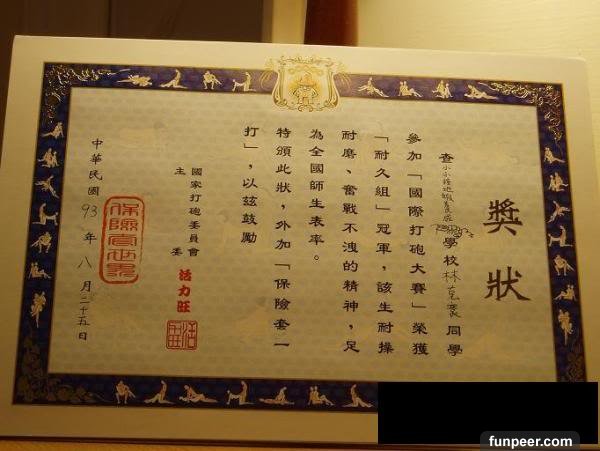 獎狀
查小小
學校林 同學
參加「國際打砲大賽」榮獲
「耐久組」冠軍，該生耐操
耐磨、奮戰不洩的精神，足
為全國師生表率。
特頒此狀，外加「保險套一
打」，以玆鼓勵
國家打砲委員會
主 委 活力旺
保險宣世界
中華民國93年八月二十五日
funpeer.com